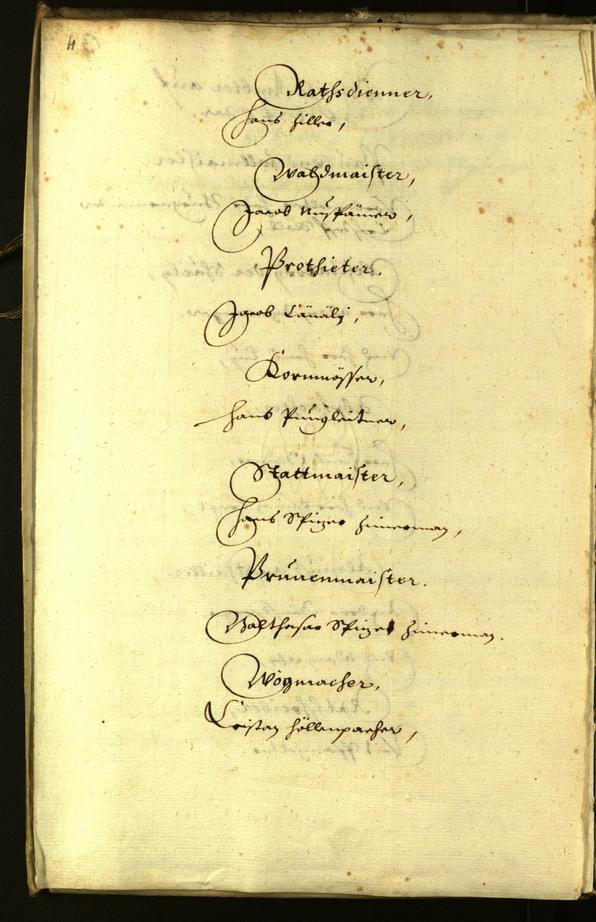 4
Rathsdienner,
Hans Ziller,
Waldmaister,
Jacob Nußpämer,
Prothieter.
Jacob
Kornmösser,
Hans Pungleitner,
Stattmaister,
Hans Spizer Zimerman,
Prunenmaister.
Balthasar Spizer Zimerman.
Wögmacher,
Cristan Höllenpacher,